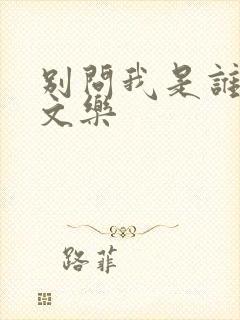 別問我是誰
文樂
路菲